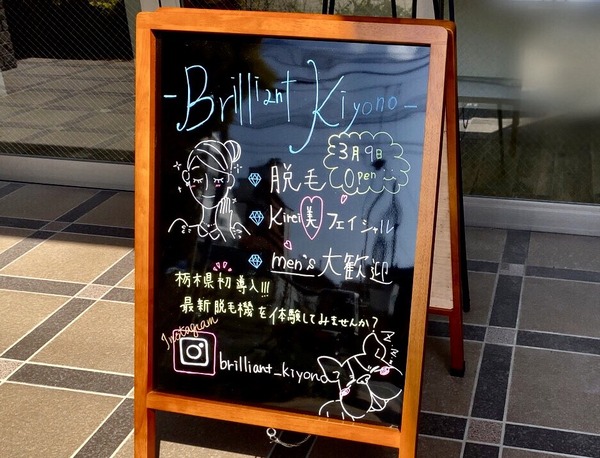 -Brilliant Kiyono-
3月9日
Open
脱毛
Kirei美フェイシャル
men's大歓迎
栃木県初導入!!!
最新脱毛機を体験してみませんか?
Instagram
brilliant_kiyono
zzz